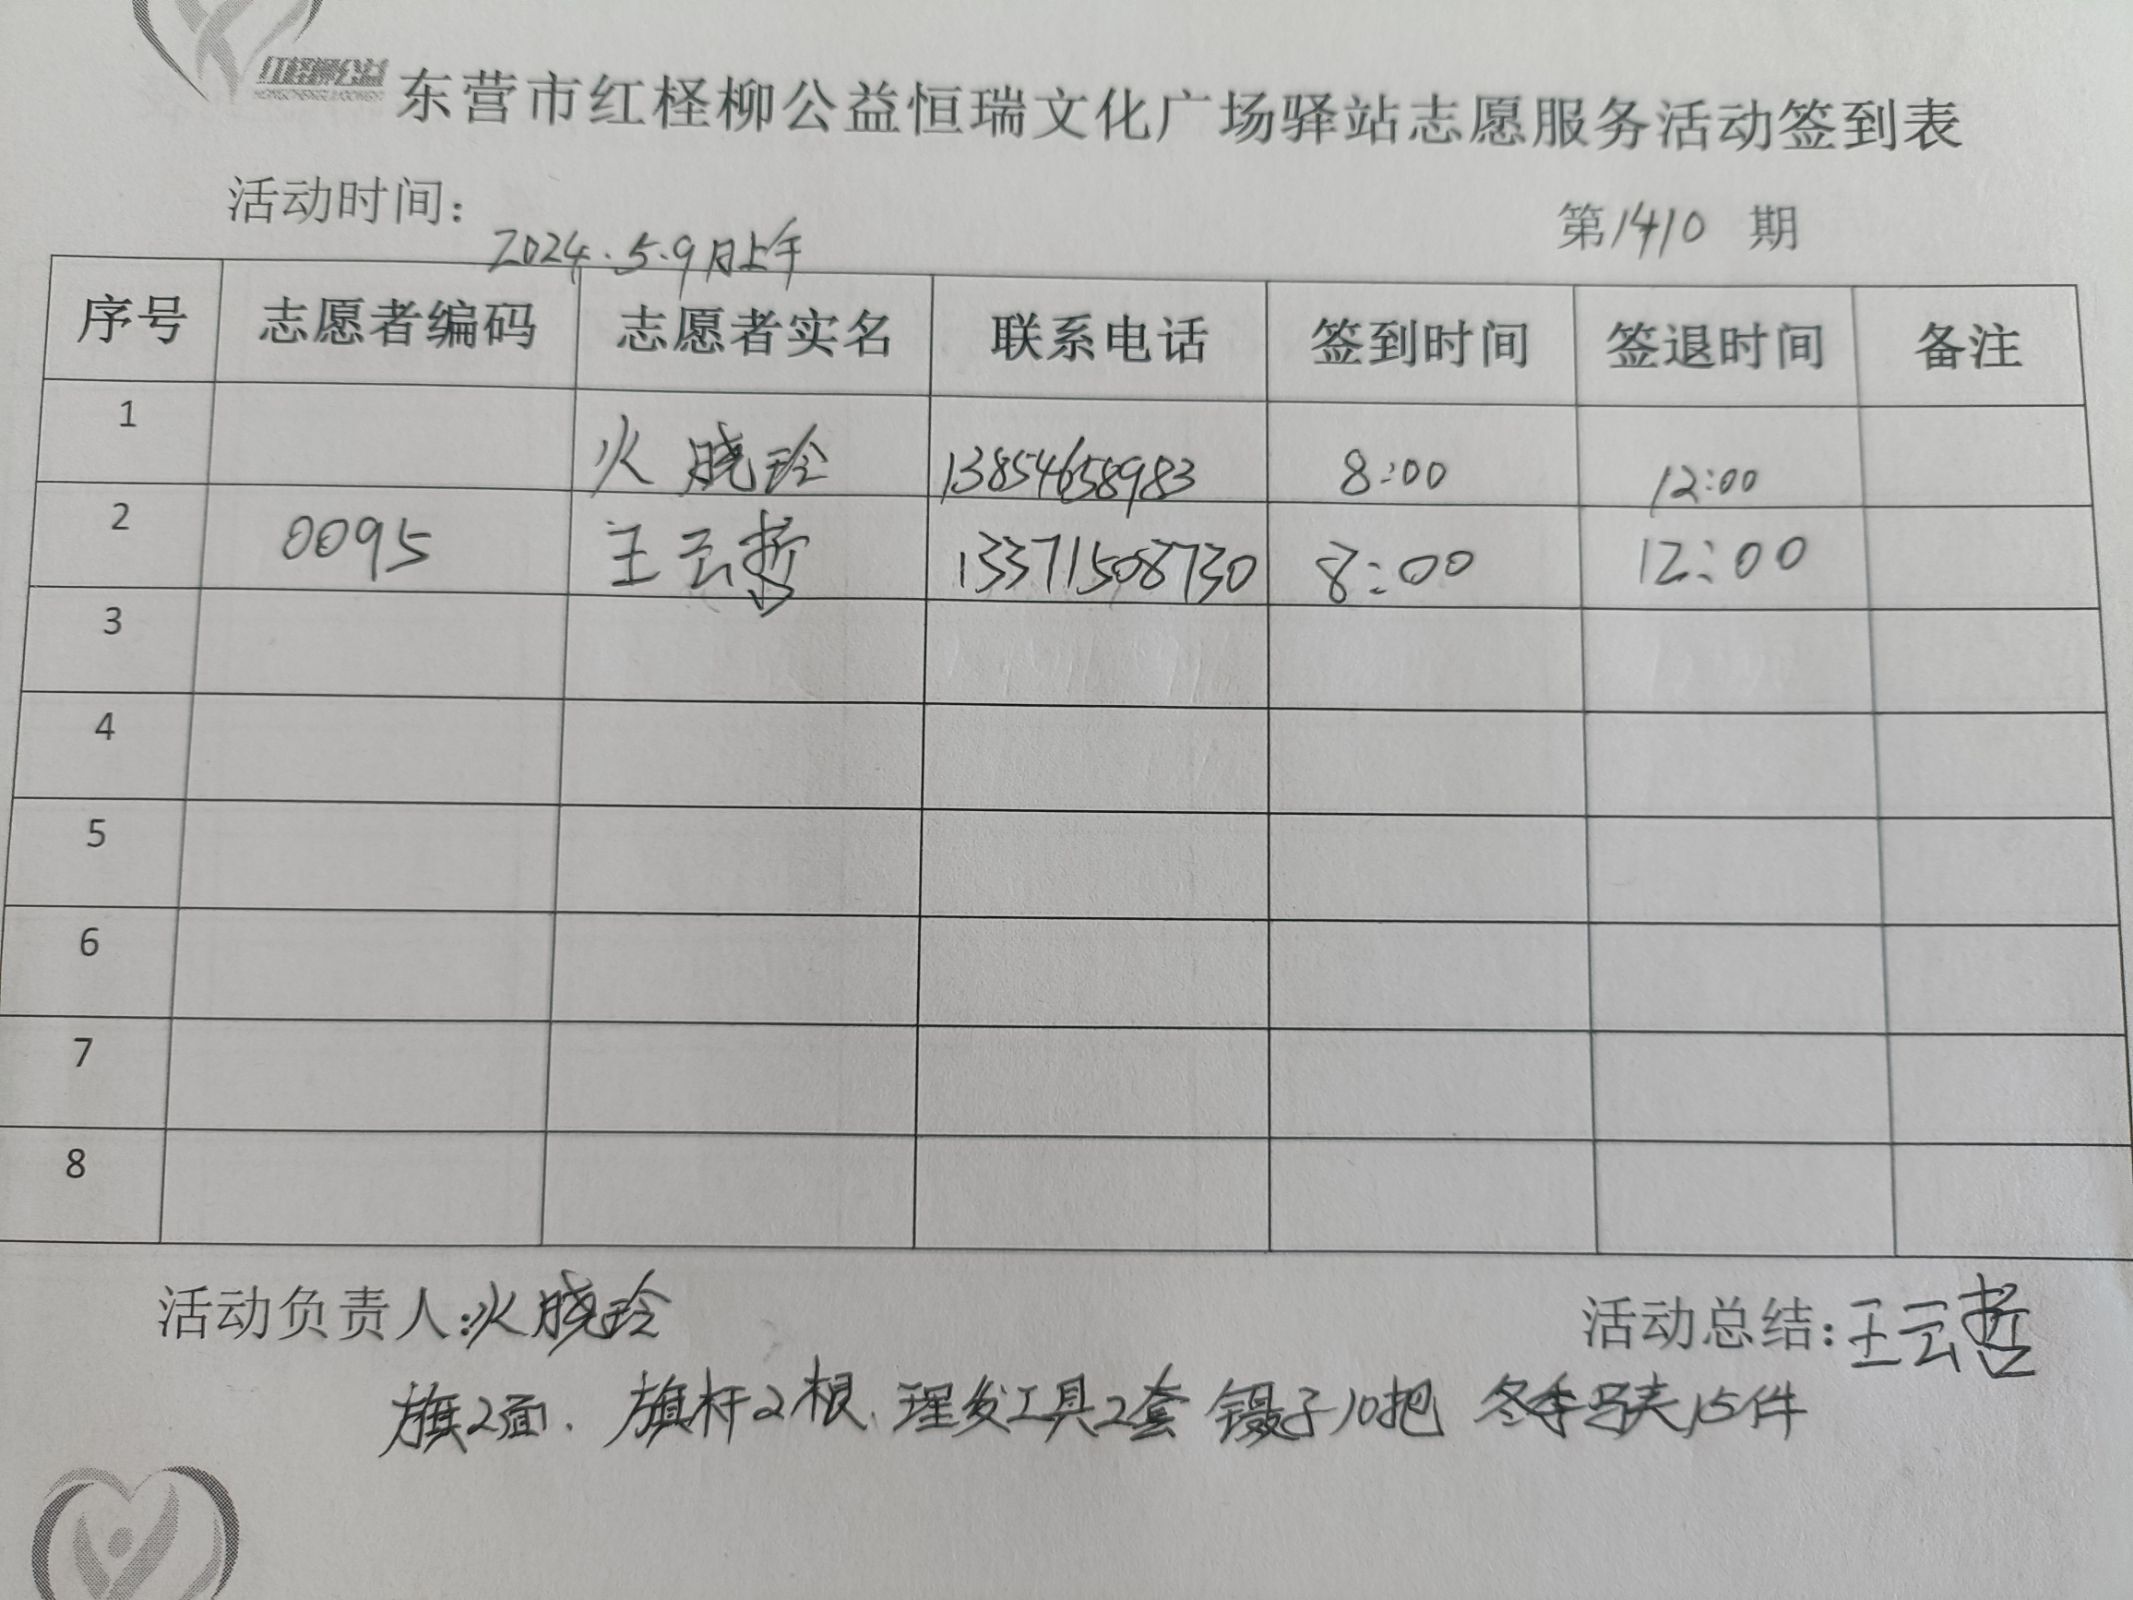 红柽柳公益
东营市红柽柳公益恒瑞文化广场驿站志愿服务活动签到表
活动时间：2024.5.9日上午 第1410期
序号 志愿者编码 志愿者实名 联系电话 签到时间 签退时间 备注
1 火晓玲 13854658983 8:00 12:00
2 0095 王云哲 13371508730 8:00 12:00
3
4
5
6
7
8
活动负责人：火晓玲 活动总结：王云哲
旗2面、旗杆2根、理发工具2套 镊子10把 冬季马夹15件